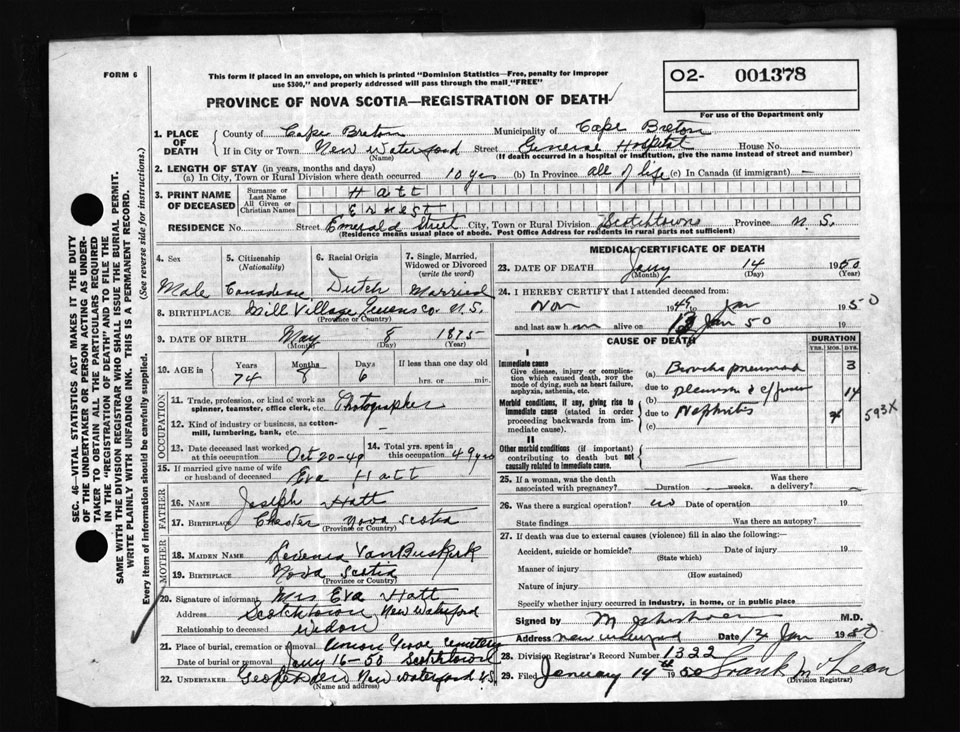 FORM 6
This form if placed in an envelope, on which is printed "Dominion Statistics—Free, penalty for improper
use $300," and properly addressed will pass through the mail "FREE"
PROVINCE OF NOVA SCOTIA—REGISTRATION OF DEATH
02- 001378
For use of the Department only
SEC. 46 - VITAL STATISTICS ACT MAKES IT THE DUTY
OF THE UNDERTAKER OR PERSON ACTING AS UNDER-
TAKER TO OBTAIN ALL THE PARTICULARS REQUIRED
IN THE "REGISTRATION OF DEATH" AND TO FILE THE
SAME WITH THE DIVISION REGISTRAR WHO SHALL ISSUE THE BURIAL PERMIT.
WRITE PLAINLY WITH UNFADING INK. THIS IS A PERMANENT RECORD.
Every item of information should be carefully supplied. (See reverse side for instructions.)
1. PLACE OF DEATH County of Cape Breton Municipality of Cape Breton
If in City or Town New Waterford Street General Hospital House No.
(Name) (If death occurred in a hospital or institution, give the name instead of street and number)
2. LENGTH OF STAY (in years, months and days)
(a) In City, Town or Rural Division where death occurred 10 yrs (b) In Province all of life (c) In Canada (if immigrant) —
3. PRINT NAME OF DECEASED Surname or Last Name Hatt
All Given or Christian Names Ernest
RESIDENCE No. Street Emerald Street City, Town or Rural Division Scotchtown Province N.S.
(Residence means usual place of abode. Post Office Address for residents in rural parts not sufficient)
4. Sex Male
5. Citizenship (Nationality) Canadian
6. Racial Origin Dutch
7. Single, Married, Widowed or Divorced (write the word) Married
8. BIRTHPLACE Mill Village Queens Co. N.S.
(Province or Country)
9. DATE OF BIRTH May 8 1875
(Month) (Day) (Year)
10. AGE in Years Months Days If less than one day old
74 8 6 hrs. or min.
OCCUPATION
11. Trade, profession, or kind of work as
spinner, teamster, office clerk, etc. Photographer
12. Kind of industry or business, as cotton-
mill, lumbering, bank, etc. -
13. Date deceased last worked at this occupation Oct 20-49
14. Total yrs. spent in this occupation 49 yrs
15. If married give name of wife or husband of deceased Eva Hatt
FATHER
16. NAME Joseph Hatt
17. BIRTHPLACE Chester Nova Scotia
(Province or Country)
MOTHER
18. MAIDEN NAME VanBuskirk
19. BIRTHPLACE Nova Scotia
(Province or Country)
20. Signature of informant Mrs Eva Hatt
Address Scotchtown New Waterford
Relationship to deceased Widow
21. Place of burial, cremation or removal Union Grove Cemetery
Date of burial or removal Jany 16-50 Scotchtown
22. UNDERTAKER New Waterford NS
(Name and address)
MEDICAL CERTIFICATE OF DEATH
23. DATE OF DEATH Jany 14 1950
(Month) (Day) (Year)
24. I HEREBY CERTIFY that I attended deceased from:
Nov 1949 Jan 1950
and last saw h im alive on 13 Jan 50 19
CAUSE OF DEATH DURATION
YRS. MOS. DYS.
I
Immediate cause
Give disease, injury or complication which caused death, not the mode of dying, such as heart failure, asphyxia, asthenia, etc.
(a) Bronchopneumonia 3
due to
Morbid conditions, if any, giving rise to immediate cause (stated in order proceeding backwards from immediate cause).
(b) 14
due to Nephritis 593X
(c)
II
Other morbid conditions (if important) contributing to death but not causally related to immediate cause.
25. If a woman, was the death associated with pregnancy? Duration weeks. Was there a delivery?
26. Was there a surgical operation? no Date of operation 19
State findings Was there an autopsy?
27. If death was due to external causes (violence) fill in also the following:
Accident, suicide or homicide? Date of injury 19
(State which)
Manner of injury
(How sustained)
Nature of injury
Specify whether injury occurred in industry, in home, or in public place
Signed by M.D.
Address New Waterford Date 14 Jan 1950
28. Division Registrar's Record Number 1322
29. Filed January 14th 1950 Frank McLean
(Division Registrar)